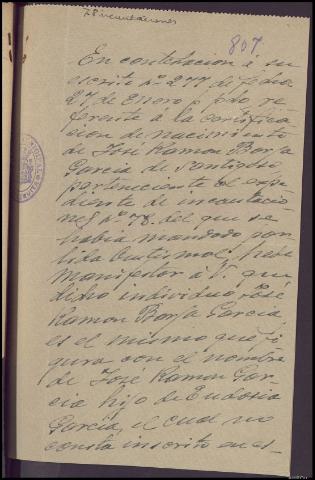 78 incautaciones
807
En contestacion á su
escrito nº 277 de fecha
27 de Enero p. pdo. re-
ferente a la certifica-
cion de nacimiento
de José Ramon Borja
Garcia de Santiago
perteneciente al expe-
diente de incautacio-
nes nº 78. del que se
habia mandado par-
tida
Manifestar á V. que
dicho individuo José
Ramon Borja Garcia
es el mismo que fi-
gura con el nombre
de José Ramon Gar-
cia hijo de Eudosia
Garcia, el cual no
consta inscrito en es-